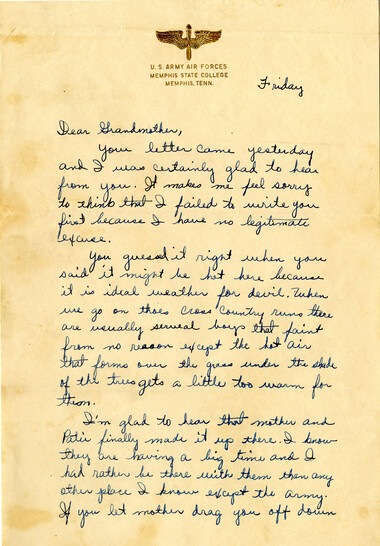 U.S. ARMY AIR FORCES
MEMPHIS STATE COLLEGE
MEMPHIS, TENN.
Friday
Dear Grandmother,
Your letter came yesterday
and I was certainly glad to hear
from you. It makes me feel sorry
to think that I failed to write you
first because I have no legitimate
excuse.
You guessed it right when you
said it might be hot here because
it is ideal weather for devil. When
we go on thoes cross country runs there
are usually serveal boys that faint
from no reason except the hot air
that forms over the grass under the shade
of the trees gets a little too warm for
them.
I'm glad to hear that mother and
finally made it up there. I know
they are having a big time and I
had rather be there with them than any
other place I know except the army.
If you let mother drag you off down